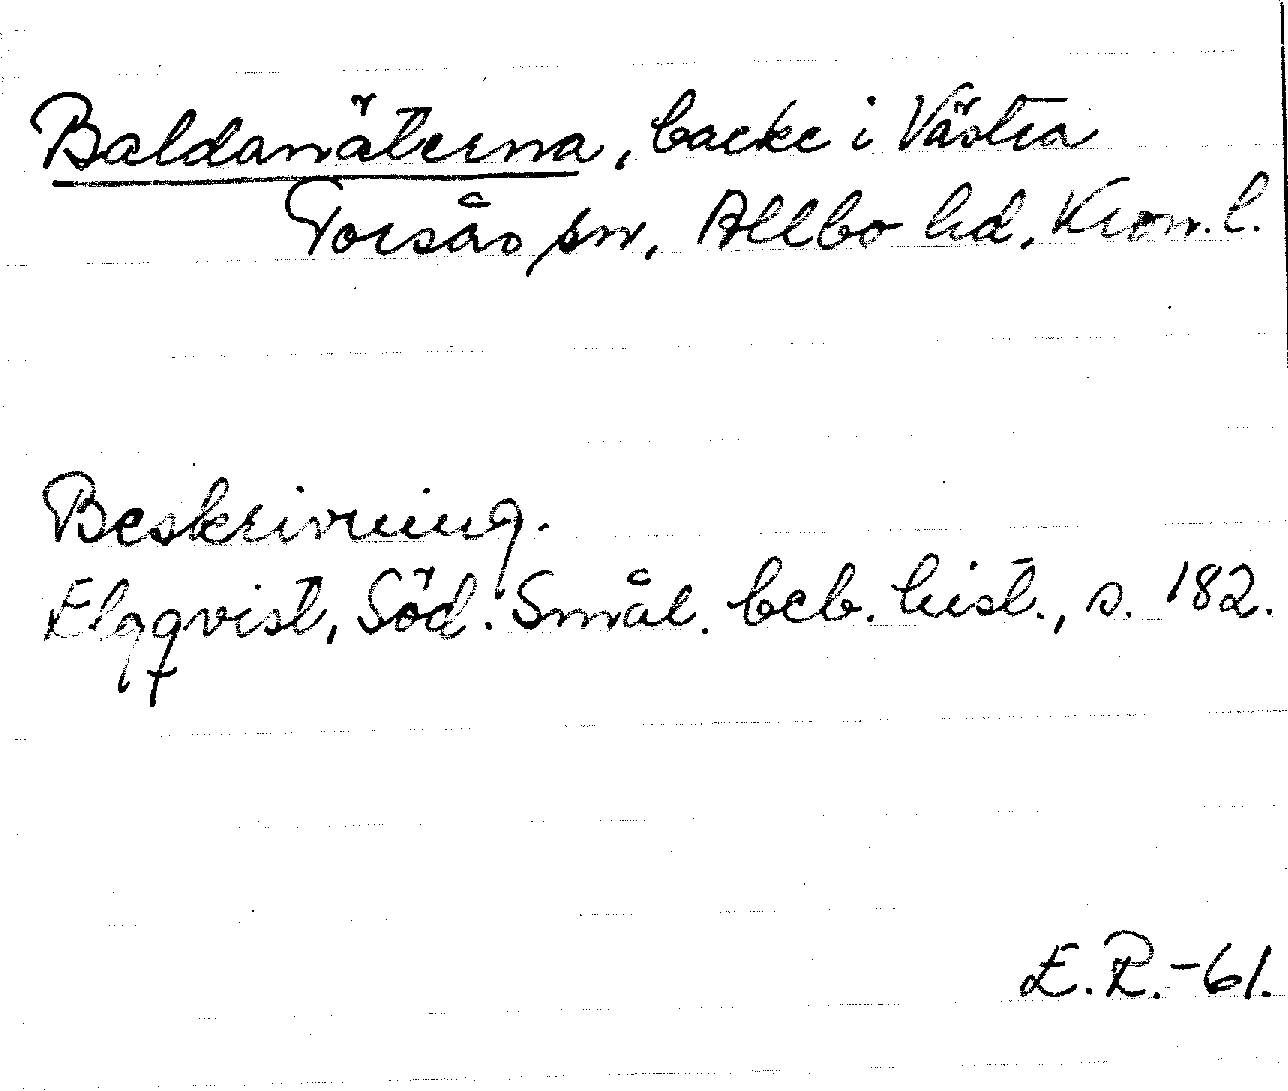 Baldanäterna, backe i Västra
Torsås sn, Allbo hd, Kron. l.
Beskrivning.
Elgqvist, Söd. Smål. beb. hist., s. 182.
E. R. -61.